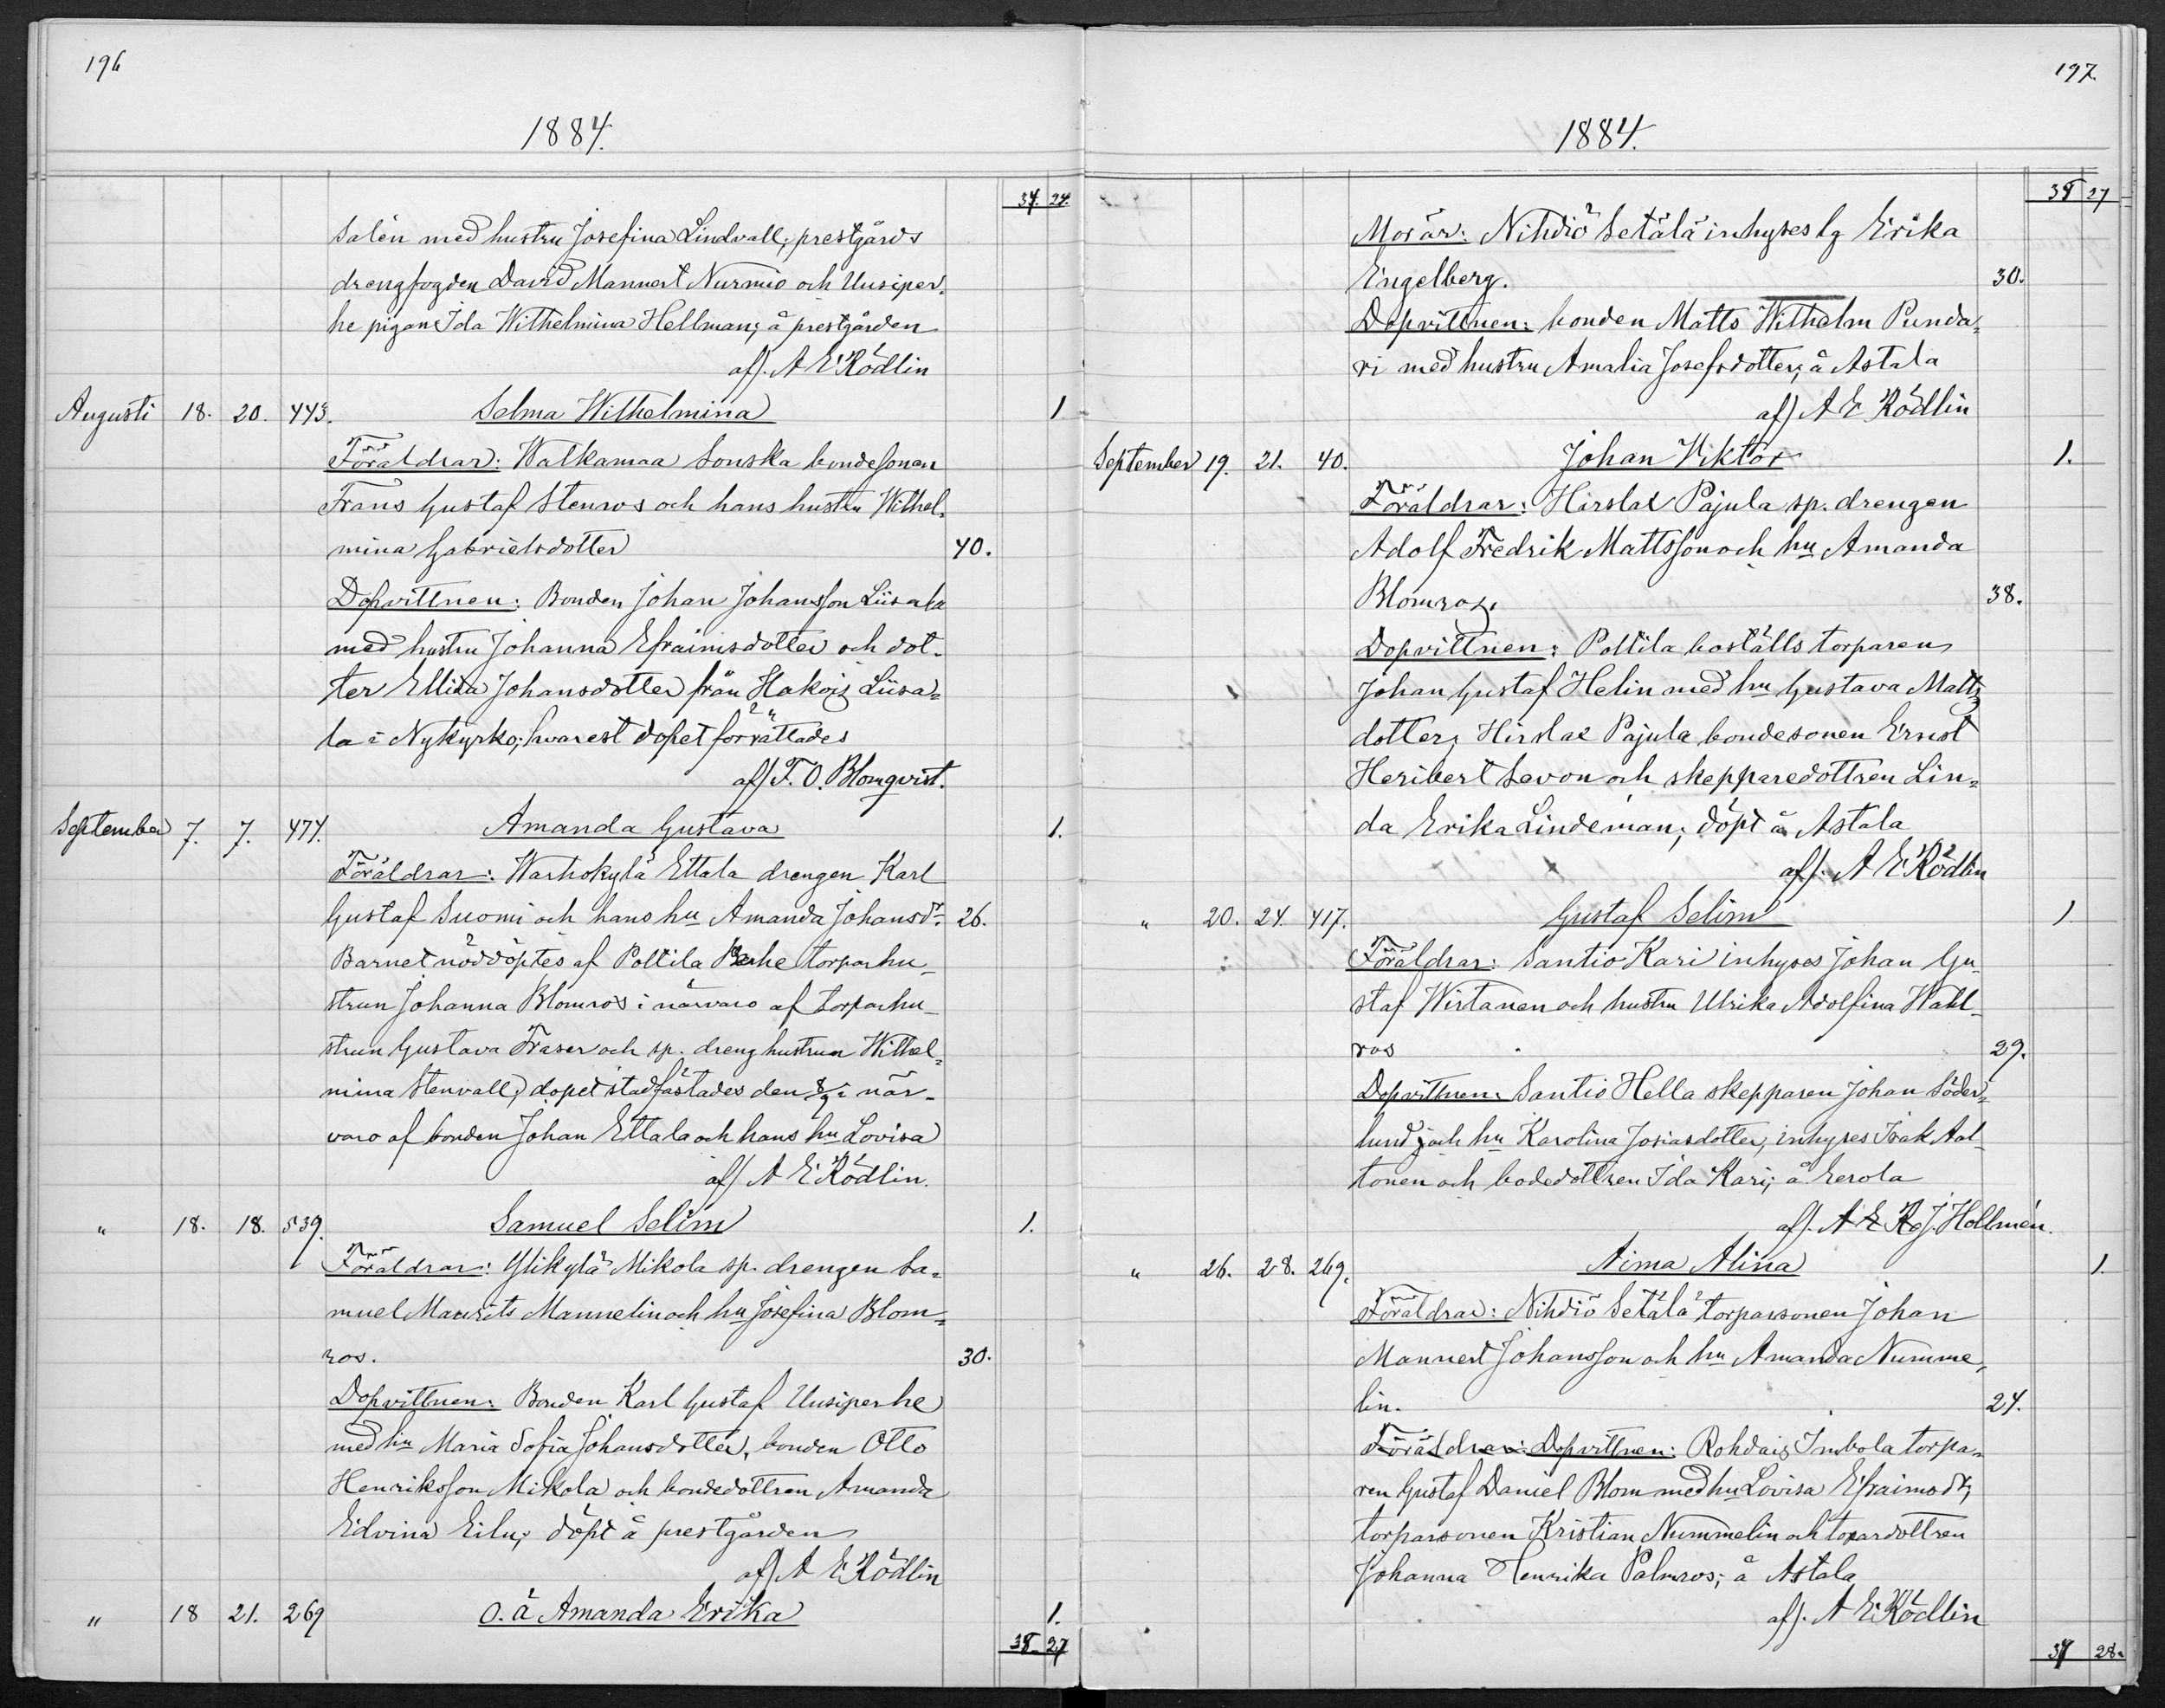 196
1884.
34. 24.
Salén med hustru Josefina Lindvall; prestgårds
drengfogden David Mannert Nurmio och Uusiper-
he pigan Ida Wilhelmina Hellman; å prestgården
af/. A E Rödlin
Augusti 18. 20. 443. Selma Wilhelmina 1
Föräldrar: Walkamaa Souska bondesonen
Frans Gustaf Stenros och hans hustru Wilhel-
mina Gabrielsdotter 40.
Dopvittnen: Bonden Johan Johansson Liisala
med hustru Johanna Efraimsdotter och dot-
ter Ellida Johansdotter från Hakois Liisa-
la i Nykyrko; hvarest dopet förrättades
af/ F. O. Blomqvist.
September 7. 7. 474. Amanda Gustava 1.
Föräldrar: Warhokylä Ettala drengen Karl
Gustaf Suomi och hans hu Amanda Johansdr 26.
Barnet nöddöptes af Poltila Perhe torparhu-
strun Johanna Blomros i närvaro af torparhu-
strun Gustava Fraser och sp. dreng hustrun Wilhel-
mina Stenvall; dopet stadfästades den 8/9 i när-
varo af bonden Johan Ettala och hans hu Lovisa
af/ A E Rödlin.
" 18. 18. 539. Samuel Selim 1.
Föräldrar: Ylikylä Mikola sp. drengen Sa-
muel Maurits Mannelin och hu Josefina Blom-
ros. 30.
Dopvittnen: Bonden Karl Gustaf Uusiperhe
med hu Maria Sofia Johansdotter, bonden Otto
Henriksson Mikola och bondedottren Amanda
Edvina Eilu; döpt å prestgården
af/ A E Rödlin
" 18 21. 269 o. ä Amanda Erika 1.
38. 27
197.
1884.
38 27
Mor är: Nihdiö Setälä inhyses lg Erika
Engelberg. 30.
Dopvittnen: bonden Matts Wilhelm Punda-
ri med hustru Amalia Josefsdotter; å Astala
af/ A E Rödlin
September 19. 21. 40. Johan Viktor 1.
Föräldrar: Hirslax Pajula sp. drengen
Adolf Fredrik Mattsson och hu Amanda
Blomros. 38.
Dopvittnen: Poltila boställs torparen
Johan Gustaf Helin med hu Gustava Matts
dotter; Hirslax Pajula bondesonen Ernst
Heribert Savon och skepparedottren Lin-
da Erika Lindeman; döpt å Astala
af/. A E Rödlin
" 20. 24. 417. Gustaf Selim 1
Föräldrar: Santio Kari inhyses Johan Gu-
staf Wirtanen och hustru Ulrika Adolfina Wahl-
ros 29.
Dopvittnen: Santio Hella skepparen Johan Söder-
lund och hu Karolina Josiasdotter, inhyses Isak Aal-
tonen och bodedottren Ida Kari; å Eerola
af/. A E R J. Hollmén.
" 26. 28. 269. Aima Alina 1.
Föräldrar: Nihdiö Setälä torparsonen Johan
Mannert Johansson och hu Amanda Numme-
lin. 24.
Föräldrar: Dopvittnen: Rohdais Imbola torpa-
ren Gustaf Daniel Blom med hu Lovisa Efraimsdr;
torparsonen Kristian Nummelin och toxardottren
Johanna Henrika Palmros; å Astala
af/. A E Rödlin
39 28.